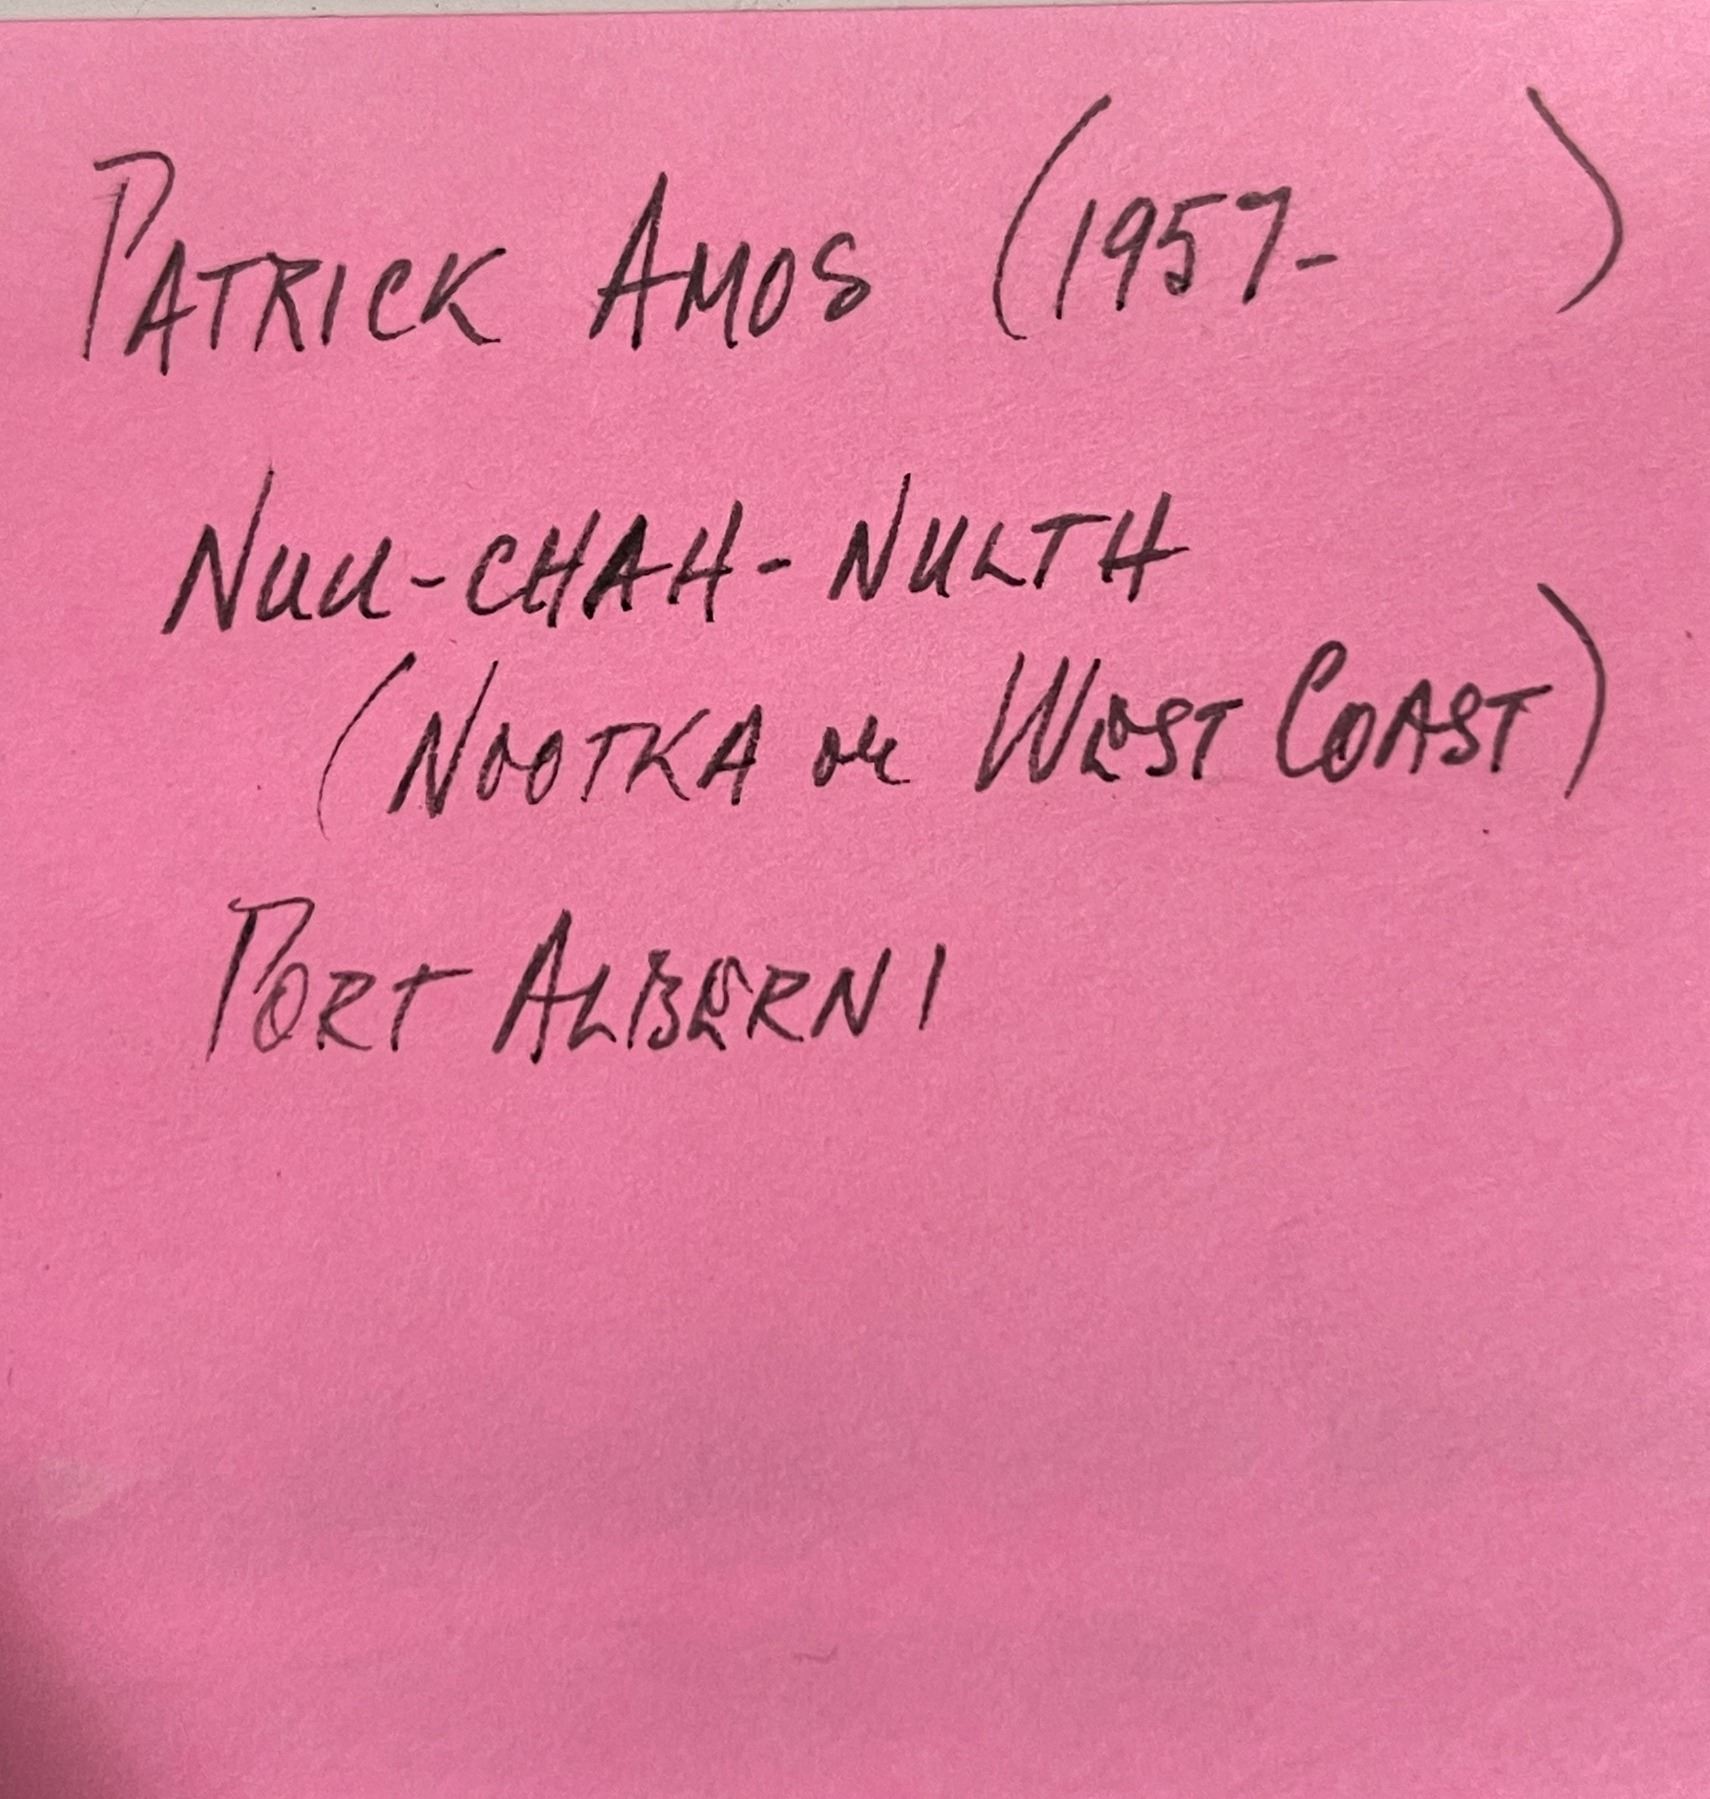 PATRICK AMOS (1957-     )
NUU-CHAH-NULTH
(NOOTKA or WEST COAST)
PORT ALBERNI